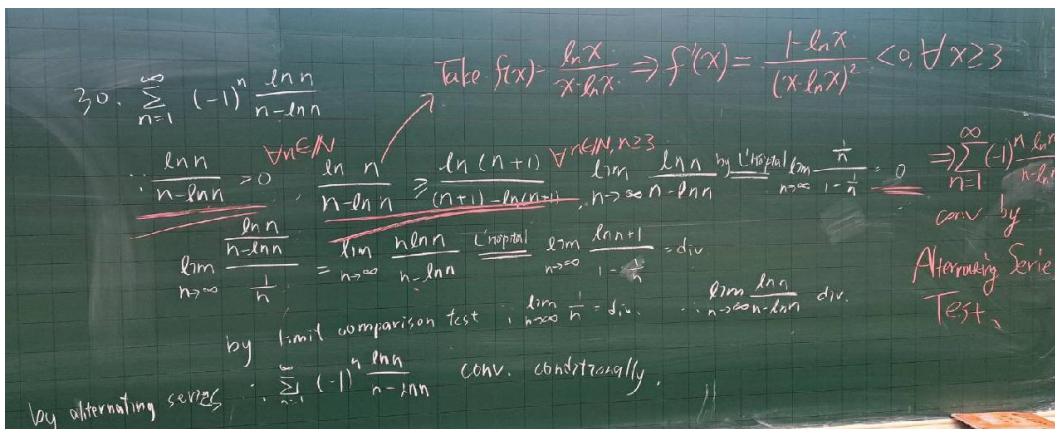 30. $\sum_{n=1}^{\infty} (-1)^n \frac{\ln n}{n-\ln n}$
Take f(x)= $\frac{\ln x}{x-\ln x}$ ⇒ f'(x)= $\frac{1-\ln x}{(x-\ln x)^2}$ <0, ∀x≥3
∵ $\frac{\ln n}{n-\ln n}$ >0 ∀n∈ℕ , $\frac{\ln n}{n-\ln n}$ ≥ $\frac{\ln(n+1)}{(n+1)-\ln(n+1)}$ ∀n∈ℕ, n≥3 , $\lim_{n\to\infty} \frac{\ln n}{n-\ln n}$ by L'Hôpital $\lim_{n\to\infty} \frac{\frac{1}{n}}{1-\frac{1}{n}}$ = 0
⇒ $\sum_{n=1}^{\infty} (-1)^n \frac{\ln n}{n-\ln n}$
conv by
Alternating Serie
Test.
$\lim_{n\to\infty} \frac{\frac{\ln n}{n-\ln n}}{\frac{1}{n}}$ = $\lim_{n\to\infty} \frac{n\ln n}{n-\ln n}$ L'Hôpital $\lim_{n\to\infty} \frac{\ln n+1}{1-\frac{1}{n}}$ = div
by limit comparison test ∵ $\lim_{n\to\infty} \frac{1}{n}$ = div. ∴ $\lim_{n\to\infty} \frac{\ln n}{n-\ln n}$ div.
by alternating series ∴ $\sum_{n=1}^{\infty} (-1)^n \frac{\ln n}{n-\ln n}$ conv. conditionally.